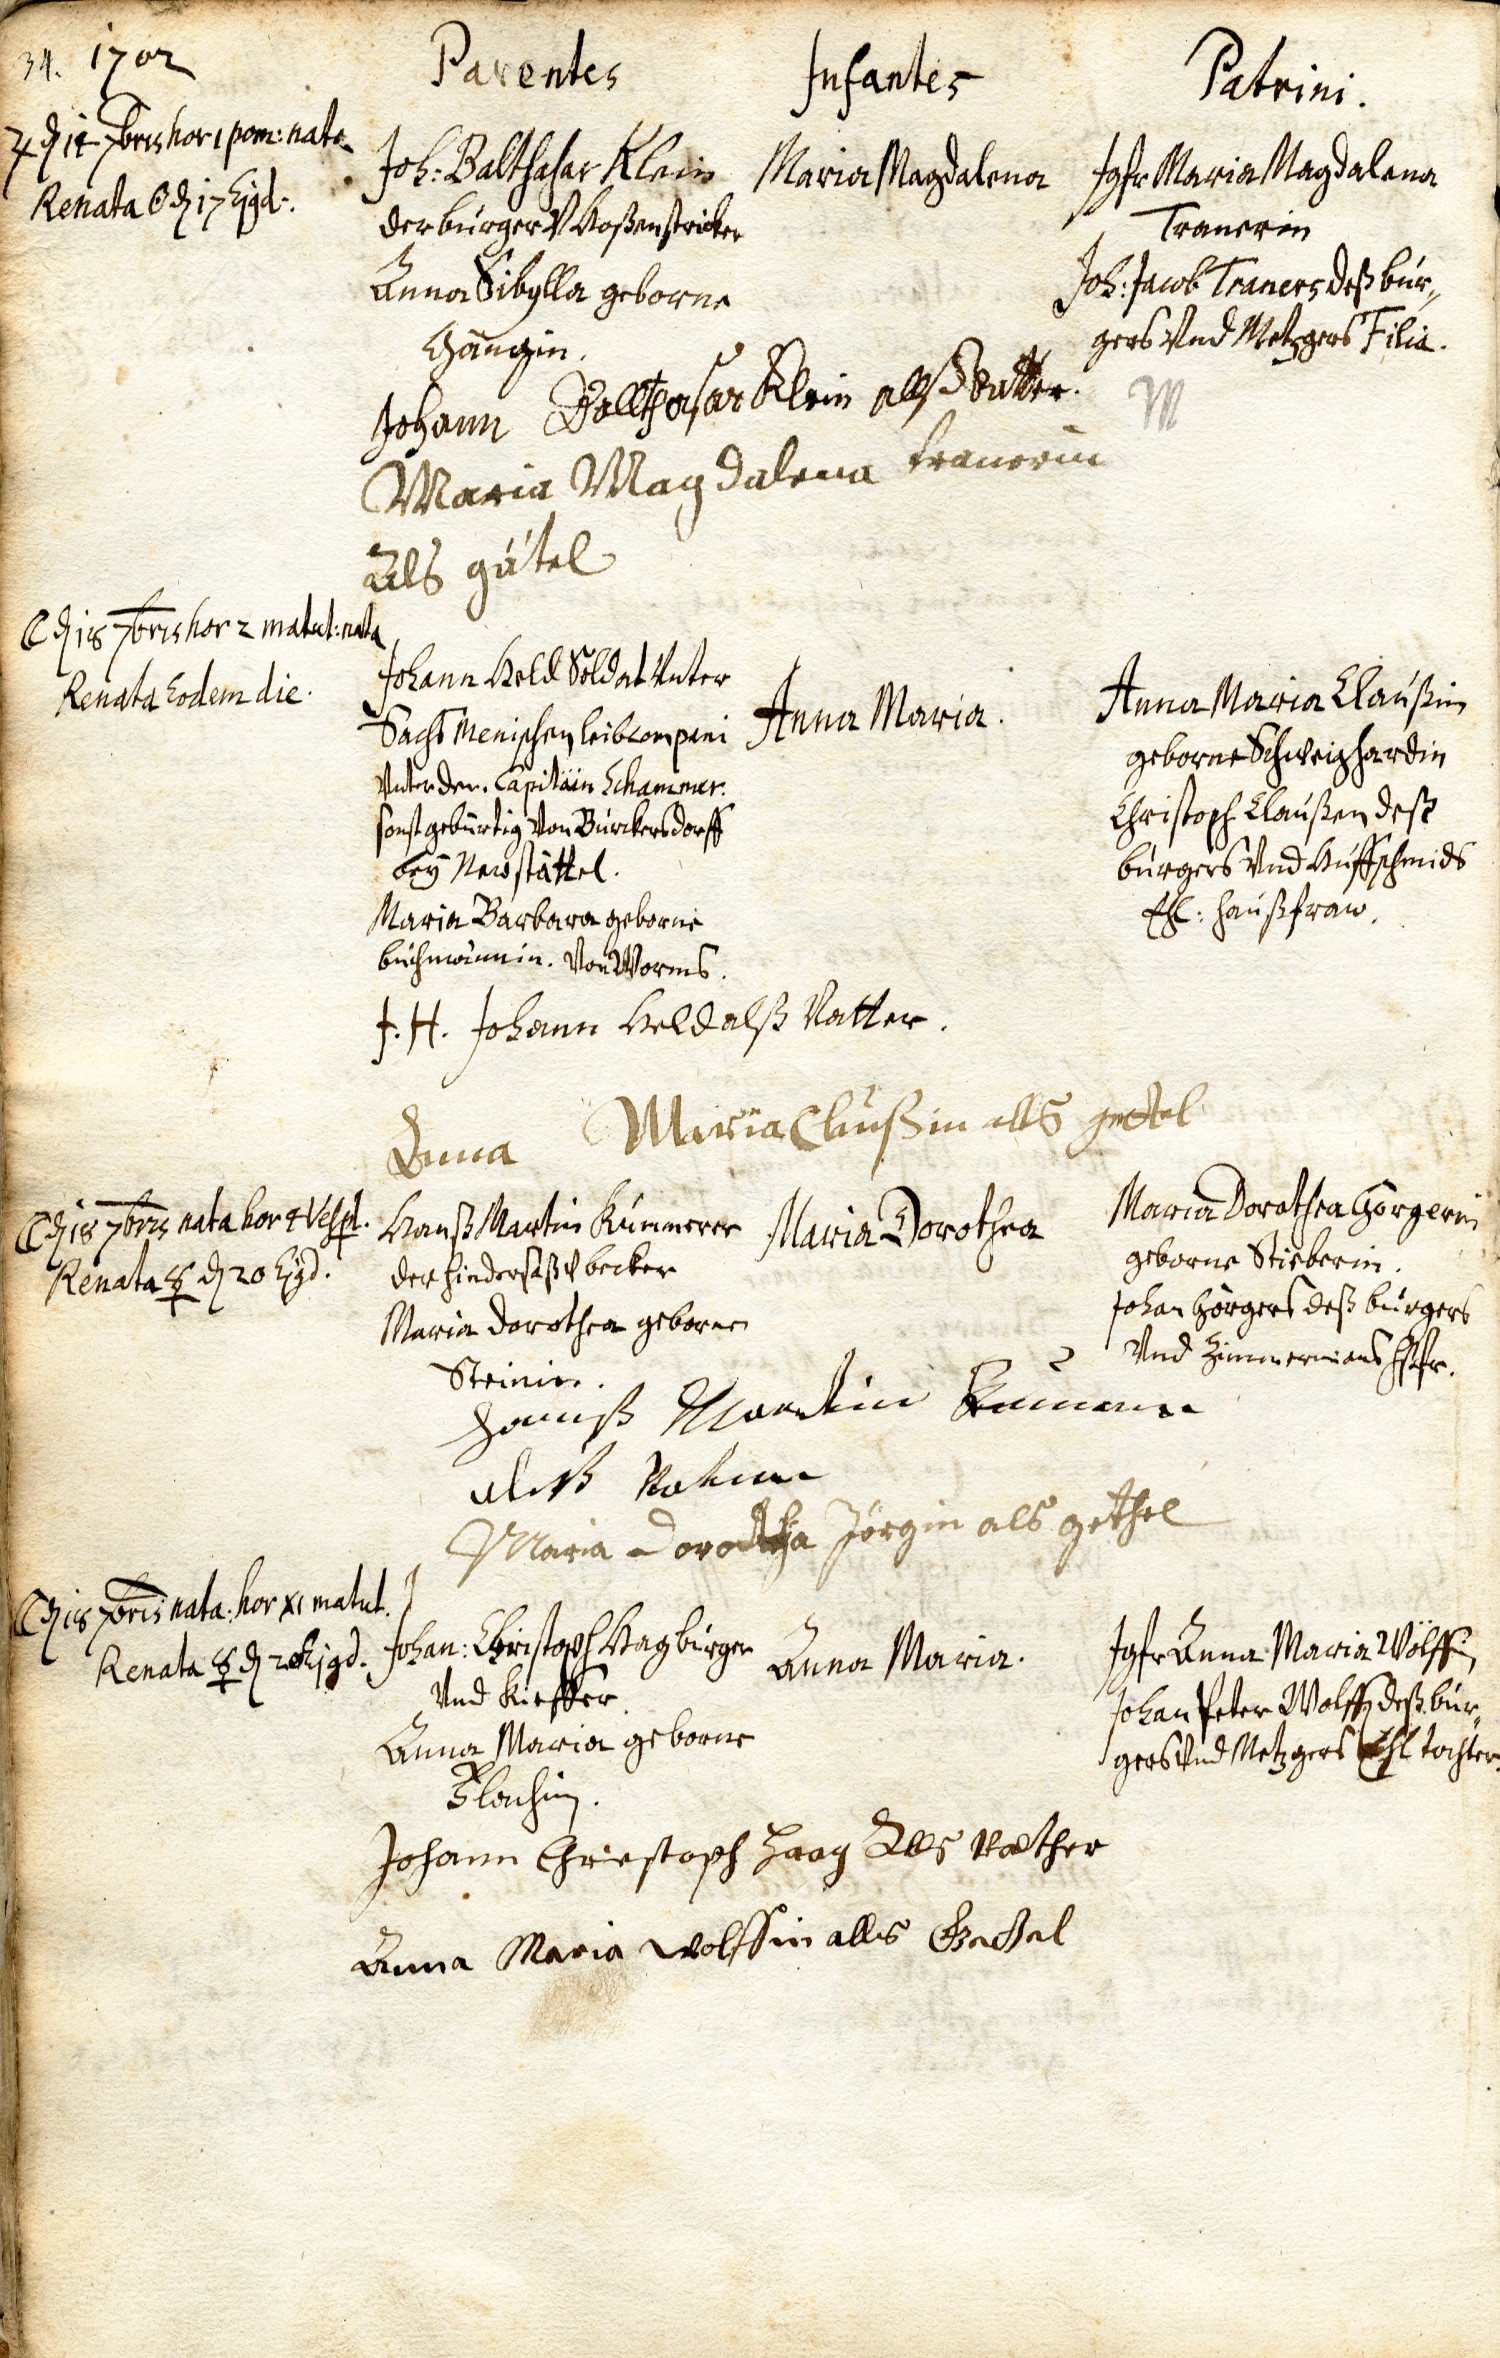 34. 1702
Parentes Infantes Patrini.
♃ d 14 7bris hor 1 pom: nata
Renata ☉ d 17 Ejgd.
Joh: Balthasar Klein
der burger V Hoßenstricker
Anna Sibylla geborne
Maria Magdalena
Jgfr Maria Magdalena
Tranerin
Joh: Jacob Traners deß bur„
gers Vnd Metzgers Filia.
Johann Ballthasar Klein allß Vatter.
M
Maria Magdalena tranerin
Als gütel
☾ d 18 7bris hor 2 matut: nata
Renata Eodem die.
Johann Held Soldat Vnter
Sachs Menischen leibcompani
Vnter der. Capitäin
sonst gebürtig Von Burckersdorff
bey Newstättel.
Maria Barbara geborne
buchmännin. Von Worms.
Anna Maria.
Anna Maria Claußin
geborne Schweighardin
Christoph Claußen deß
burgers Vnd Huffschmids
Ehl: haußfraw.
J. H. Johann Held alß Vatter.
Anna Maria Claußin alls gettel
☾ d 18 7bris nata hor 4 Vesp.
Renata ☿ d 20 Ejgd.
Hanß Martin Kümmerer
der hindersaß V becker
Maria Dorothea geborne
Steinin.
Maria Dorothea
Maria Dorothea Görgerin
geborne Stieberin.
Johan Görgers deß burgers
Vnd Zimmermans Hßfr.
Hanß Martin
alß
Maria Dorothea Jörgin als gethel
☾ d 18 7bris nata: hor XI matut.
Renata ☿ d 20 Ejgd.
Johan: Christoph Hag burger
Vnd Kieffer
Anna Maria geborne
Anna Maria.
Jgfr Anna Maria Wölffin
Johan Peter Wolffen deß bur„
gers Vnd Metzgers Ehl tochter.
Johann Christoph Haag Als Vather
Anna Maria wolffin alls